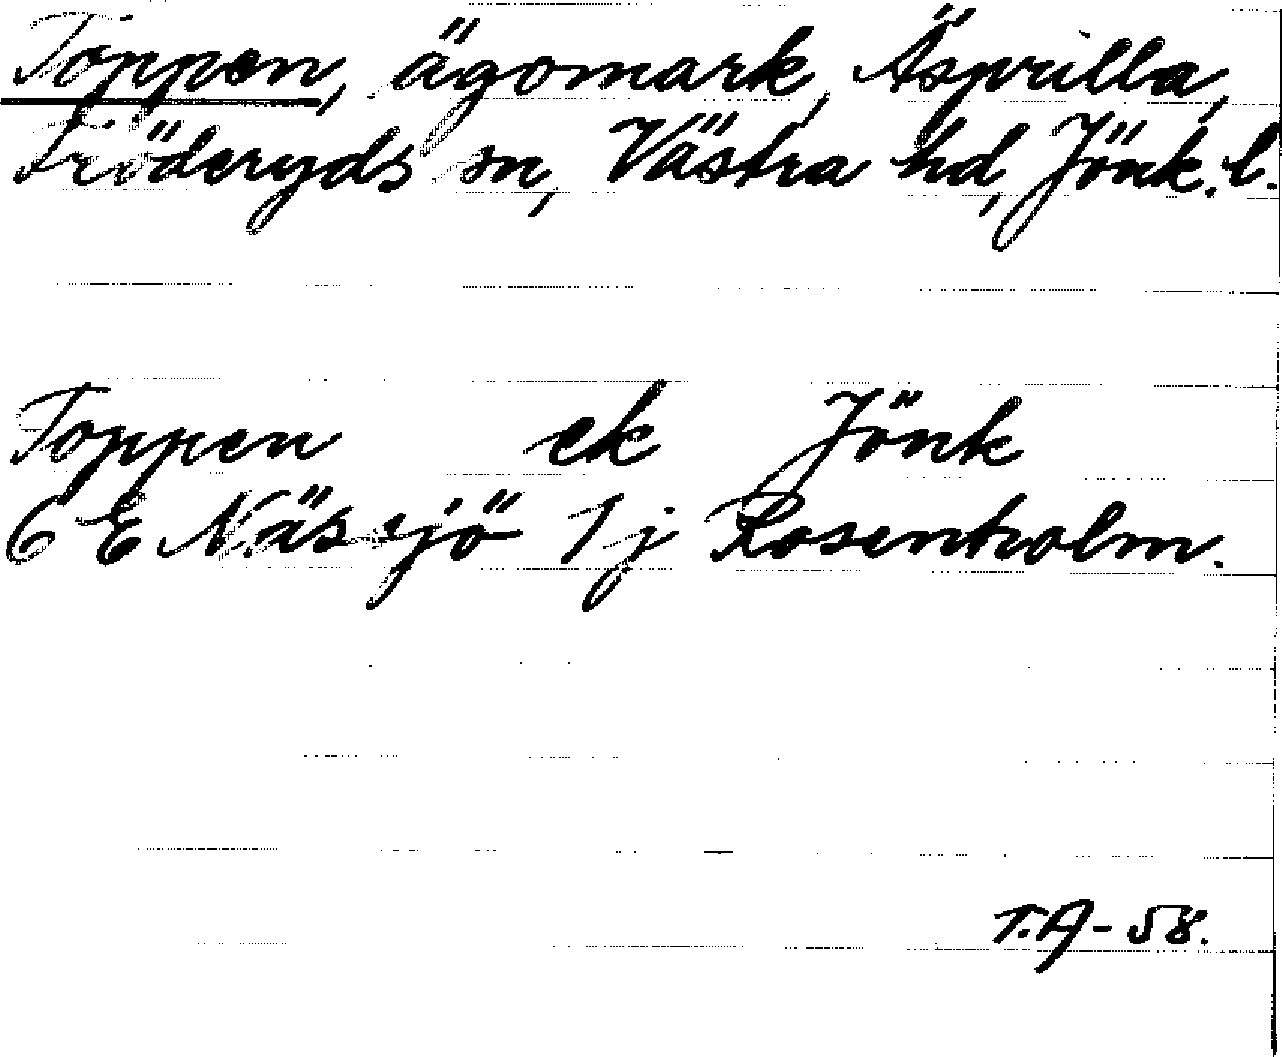 Toppen, ägomark, Äsprilla,
Fröderyds sn, Västra hd, Jönk. l.
Toppen ek Jönk
6 E Nässjö 1 j Rosenholm.
T.A-58.